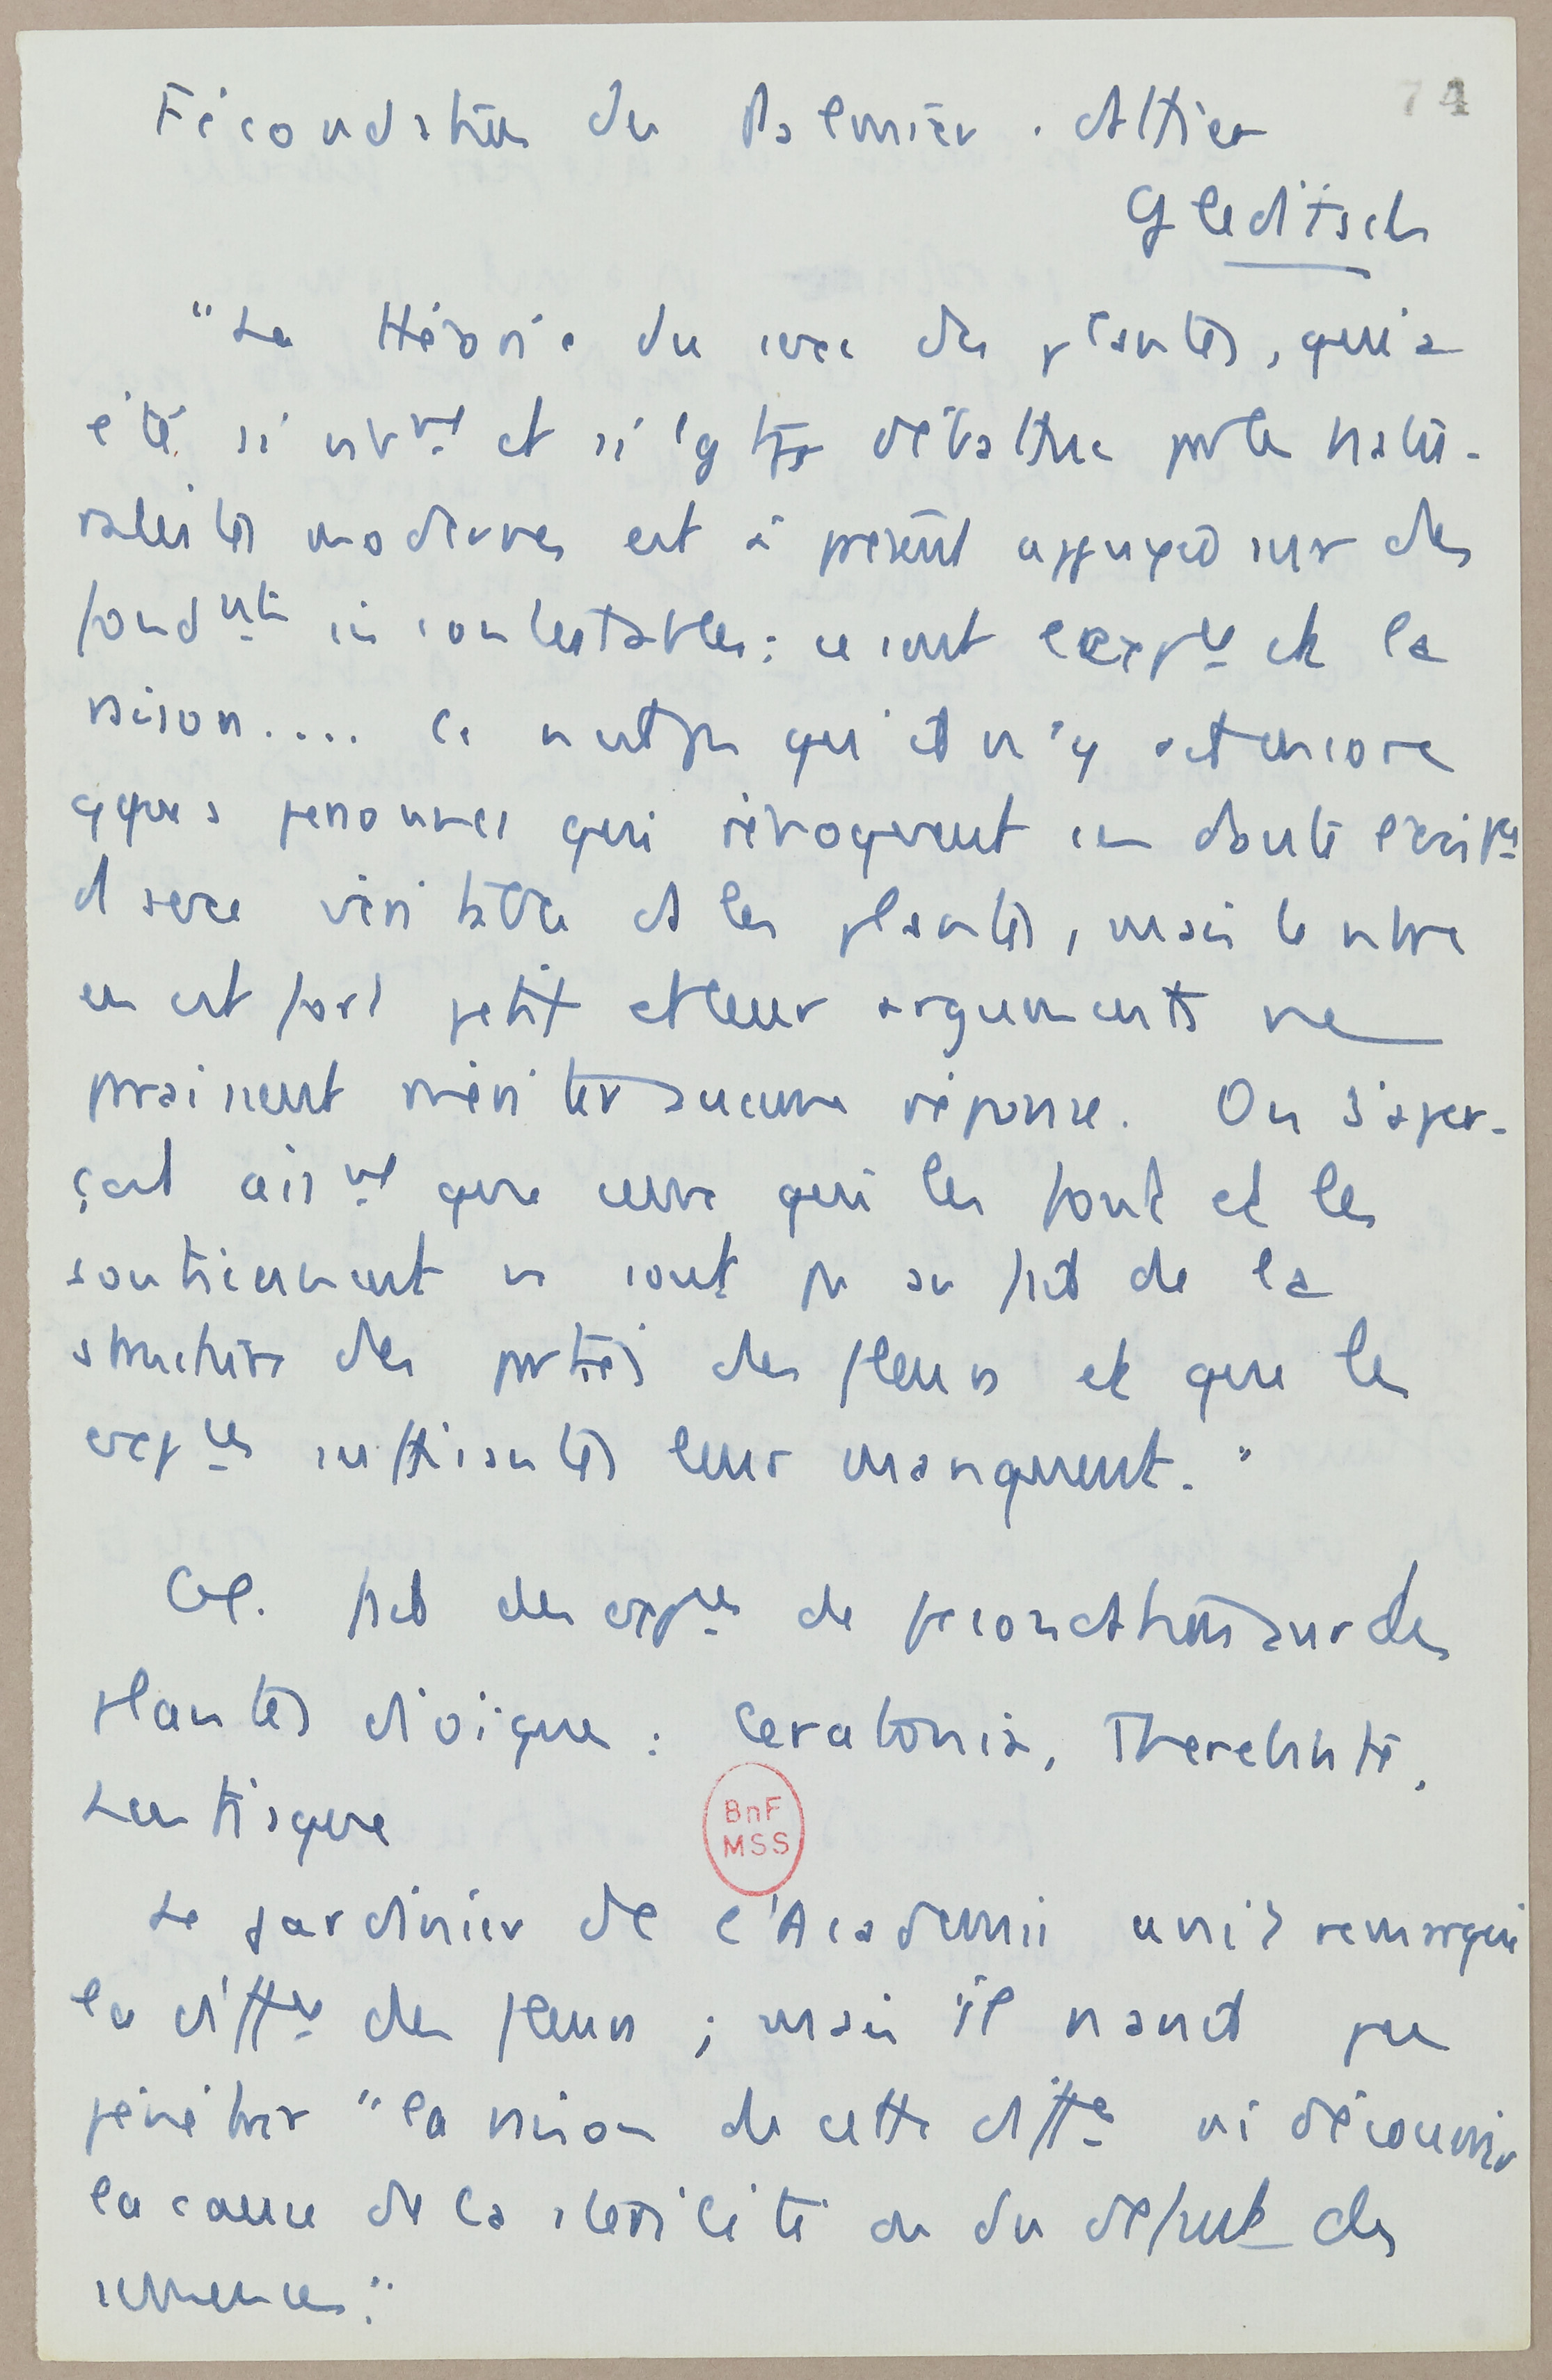 74
Fécondation du Palmier. Attier
Gleditsch
"La théorie du sexe des plantes, qui a
été si svt et si lgtps débattue par les natu-
ralistes modernes est à présent appuyée sur des
fondmts incontestables : ce sont l'expce et la
raison.... Ce n'est pas qu'il n'y ait encore
qques personnes qui révoquent en doute l'exis
d sexe véritable ds les plantes, mais le nbre
en est fort petit et leur arguments ne
praissent mériter aucune réponse. On s'aper-
çoit aismt que ceux qui les font et les
soutiennent ne sont pas au fait de la
structure des parties des fleurs et que les
expces suffisantes leur manquent."
Gl. fait des expces de fécondation sur des
plantes dioïques : Ceratonia, Therebinte,
Lentisque
Le jardinier de l'Académie avait remarqué
la diffce des fleurs ; mais il n'avait pu
pénétrer "la raison de cette diffce ni découvrir
la cause de la stérilité ou du défaut des
semences."
BnF
MSS